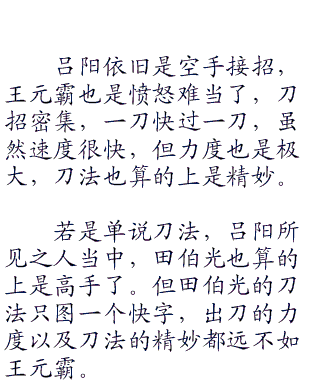 吕阳依旧是空手接招，
王元霸也是愤怒难当了，刀
招密集，一刀快过一刀，虽
然速度很快，但力度也是极
大，刀法也算的上是精妙。
若是单说刀法，吕阳所
见之人当中，田伯光也算的
上是高手了。但田伯光的刀
法只图一个快字，出刀的力
度以及刀法的精妙都远不如
王元霸。